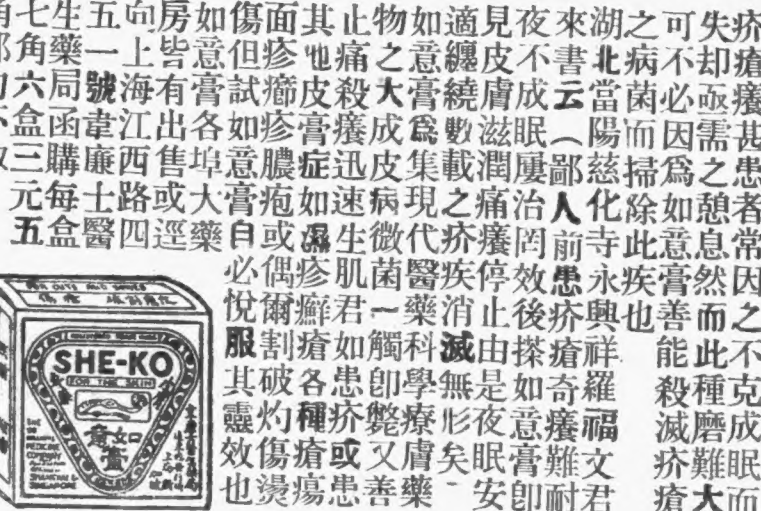 疥瘡癢甚患者常因之不克成眠而
失却亟需之憩息然而此種磨難大
可不必因爲如意膏善能殺滅疥瘡
之病菌而掃除此疾也
湖北當陽慈化寺永興祥羅福文君
來書云(鄙人前患疥瘡奇癢難耐
夜不成眠屢治罔效後搽如意膏卽
見皮膚滋潤痛癢停止由是夜眠安
適纏繞數載之疥疾消滅無形矣
如意膏爲集現代醫藥科學療膚藥
物之大成皮病微菌一觸卽斃又善
止痛殺癢迅速生肌君如患疥或患
其他皮膏症如濕疹癬瘡各種瘡瘍
面疹癤疹膿疱或偶爾割破灼傷燙
傷但試如意膏自必悅服其靈效也
如意膏各埠大藥
房皆有出售或逕
向上海江西路四
五一號韋廉士醫
生藥局函購每盒
七角六盒三元五
SHE-KO
FOR THE SKIN
如意膏